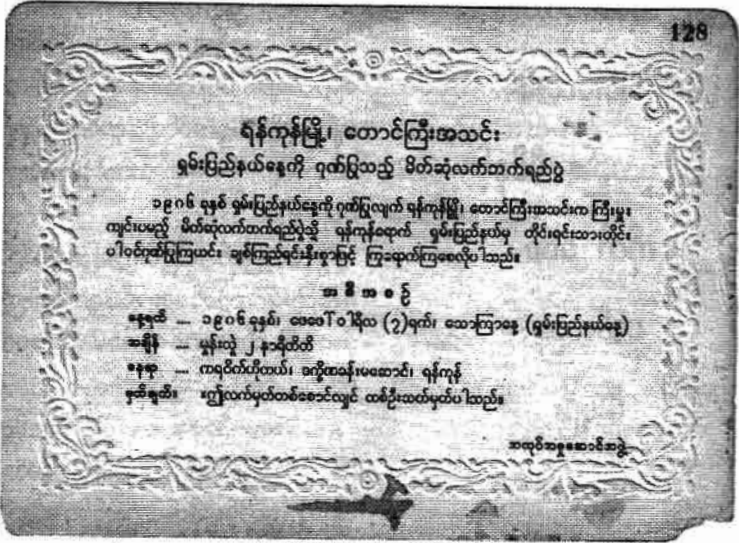 128
ရန်ကုန်မြို့၊ တောင်ကြီးအသင်း
ရှမ်းပြည်နယ်နေ့ကို ဂုဏ်ပြုသည့် မိတ်ဆုံလက်ဘက်ရည်ပွဲ
၁၉၈၆ ခုနှစ် ရှမ်းပြည်နယ်နေ့ကို ဂုဏ်ပြုလျက် ရန်ကုန်မြို့၊ တောင်ကြီးအသင်းက ကြီးမှူး
ကျင်းပမည့် မိတ်ဆုံလက်ဘက်ရည်ပွဲသို့ ရန်ကုန်ရောက် ရှမ်းပြည်နယ်မှ တိုင်းရင်းသားတိုင်း
ပါဝင်ဂုဏ်ပြုကြယင်း ချစ်ကြည်ရင်းနှီးစွာဖြင့် ကြွရောက်ကြစေလိုပါသည်။
အစီအစဉ်
နေ့ရက် ... ၁၉၈၆ ခုနှစ်၊ ဖေဖော်ဝါရီလ (၇)ရက်၊ သောကြာနေ့ (ရှမ်းပြည်နယ်နေ့)
အချိန် ... မွန်းလွဲ ၂ နာရီတိတိ
နေရာ ... ကရဝိက်ဟိုတယ်၊ ဒက္ခိဏခန်းမဆောင်၊ ရန်ကုန်
မှတ်ချက်။ ။ဤလက်မှတ်တစ်စောင်လျှင် တစ်ဦးသတ်မှတ်ပါသည်။
အလုပ်အမှုဆောင်အဖွဲ့